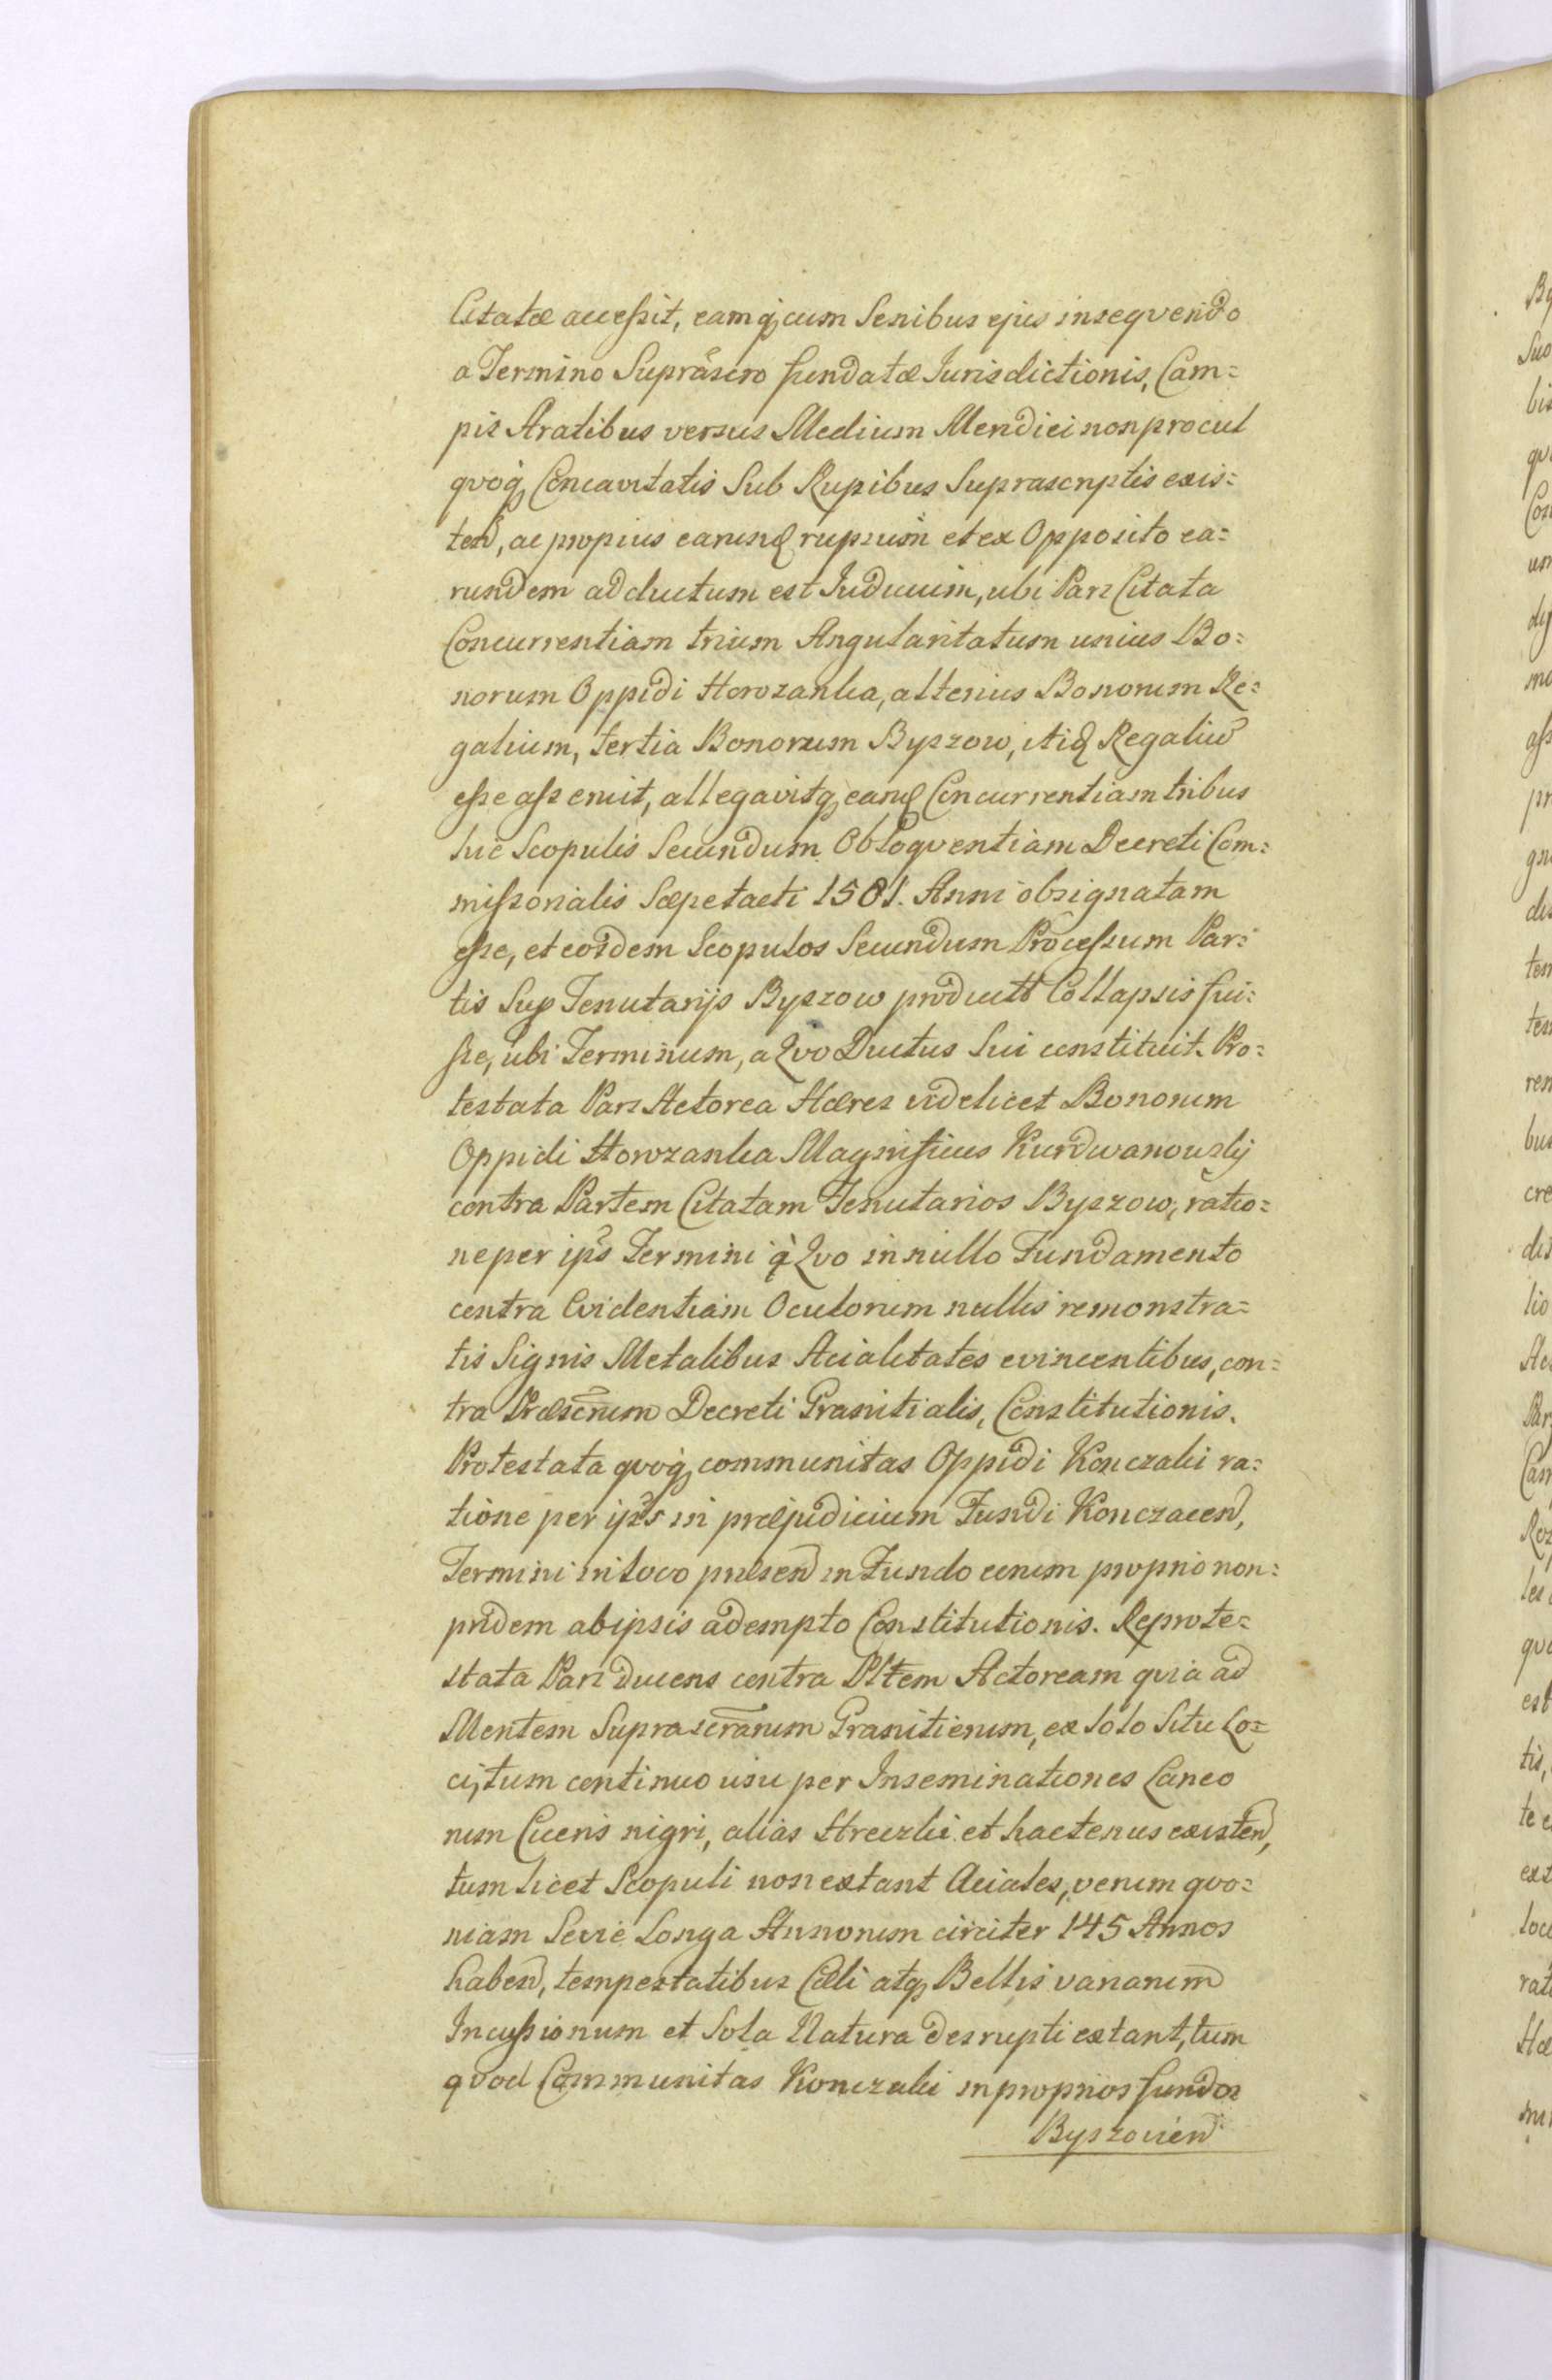 Citatæ accessit, eamq; cum Senibus ejus insequendo
a Termino Suprascro fundatæ Iurisdictionis, Cam=
pis Aratibus versus Medium Mendici non procul
qvoq; Concavitatis Sub Rupibus Suprascriptis exis=
ten, ac propius earund rupium et ex Opposito ea=
rundem adductum est Iudicium, ubi Pars Citata
Concurrentiam trium Angularitatum unius Bo=
norum Oppidi Horozanka, alterius Bonorum Re=
galium, tertia Bonorum Byszow, itid Regaliu
esse asseruit, allegavitq; eand Concurrentiam tribus
hic Scopulis Secundum Obloqventiam Decreti Com=
missorialis Sæpetacti 1581. Anni obsignatam
esse, et eosdem Scopulos Secundum Processum Par=
tis Sup Tenutarijs Byszow productt Collapsis fui=
sse, ubi Terminum, a Qvo Ductus Sui constituit. Pro=
testata Pars Actorea Hæres videlicet Bonorum
Oppidi Horozanka Magnificus Kurdwanowskij
contra Partem Citatam Tenutarios Byszow, ratio=
ne per ips Termini à Qvo in nullo Fundamento
contra Evidentiam Oculorum nullis remonstra=
tis Signis Metalibus Acialitates evincentibus, con=
tra Præscrium Decreti Granitialis, Constitutionis.
Protestata qvoq; communitas Oppidi Konczaki ra=
tione per ips in præjudicium Fundi Konczacen,
Termini in loco præsen in Fundo eorum proprio non=
pridem ab ipsis adempto Constitutionis. Reprote=
stata Pars ducens contra Pltem Actoream qvia ad
Mentem Suprascranum Granitierum, ex Solo Situ Lo=
ci, tum continuo usu per Inseminationes Caneo
rum Ciceris nigri, alias Hreczki et hactenus existen,
tum licet Scopuli non extant Aciales, verum qvo=
niam Serie Longa Annorum circiter 145 Annos
haben, tempestatibus Cæli atq; Bellis variarum
Incussionum et Sola Natura desrupti extant, tum
qvod Communitas Konczaki in proprios fundos
Byszovien